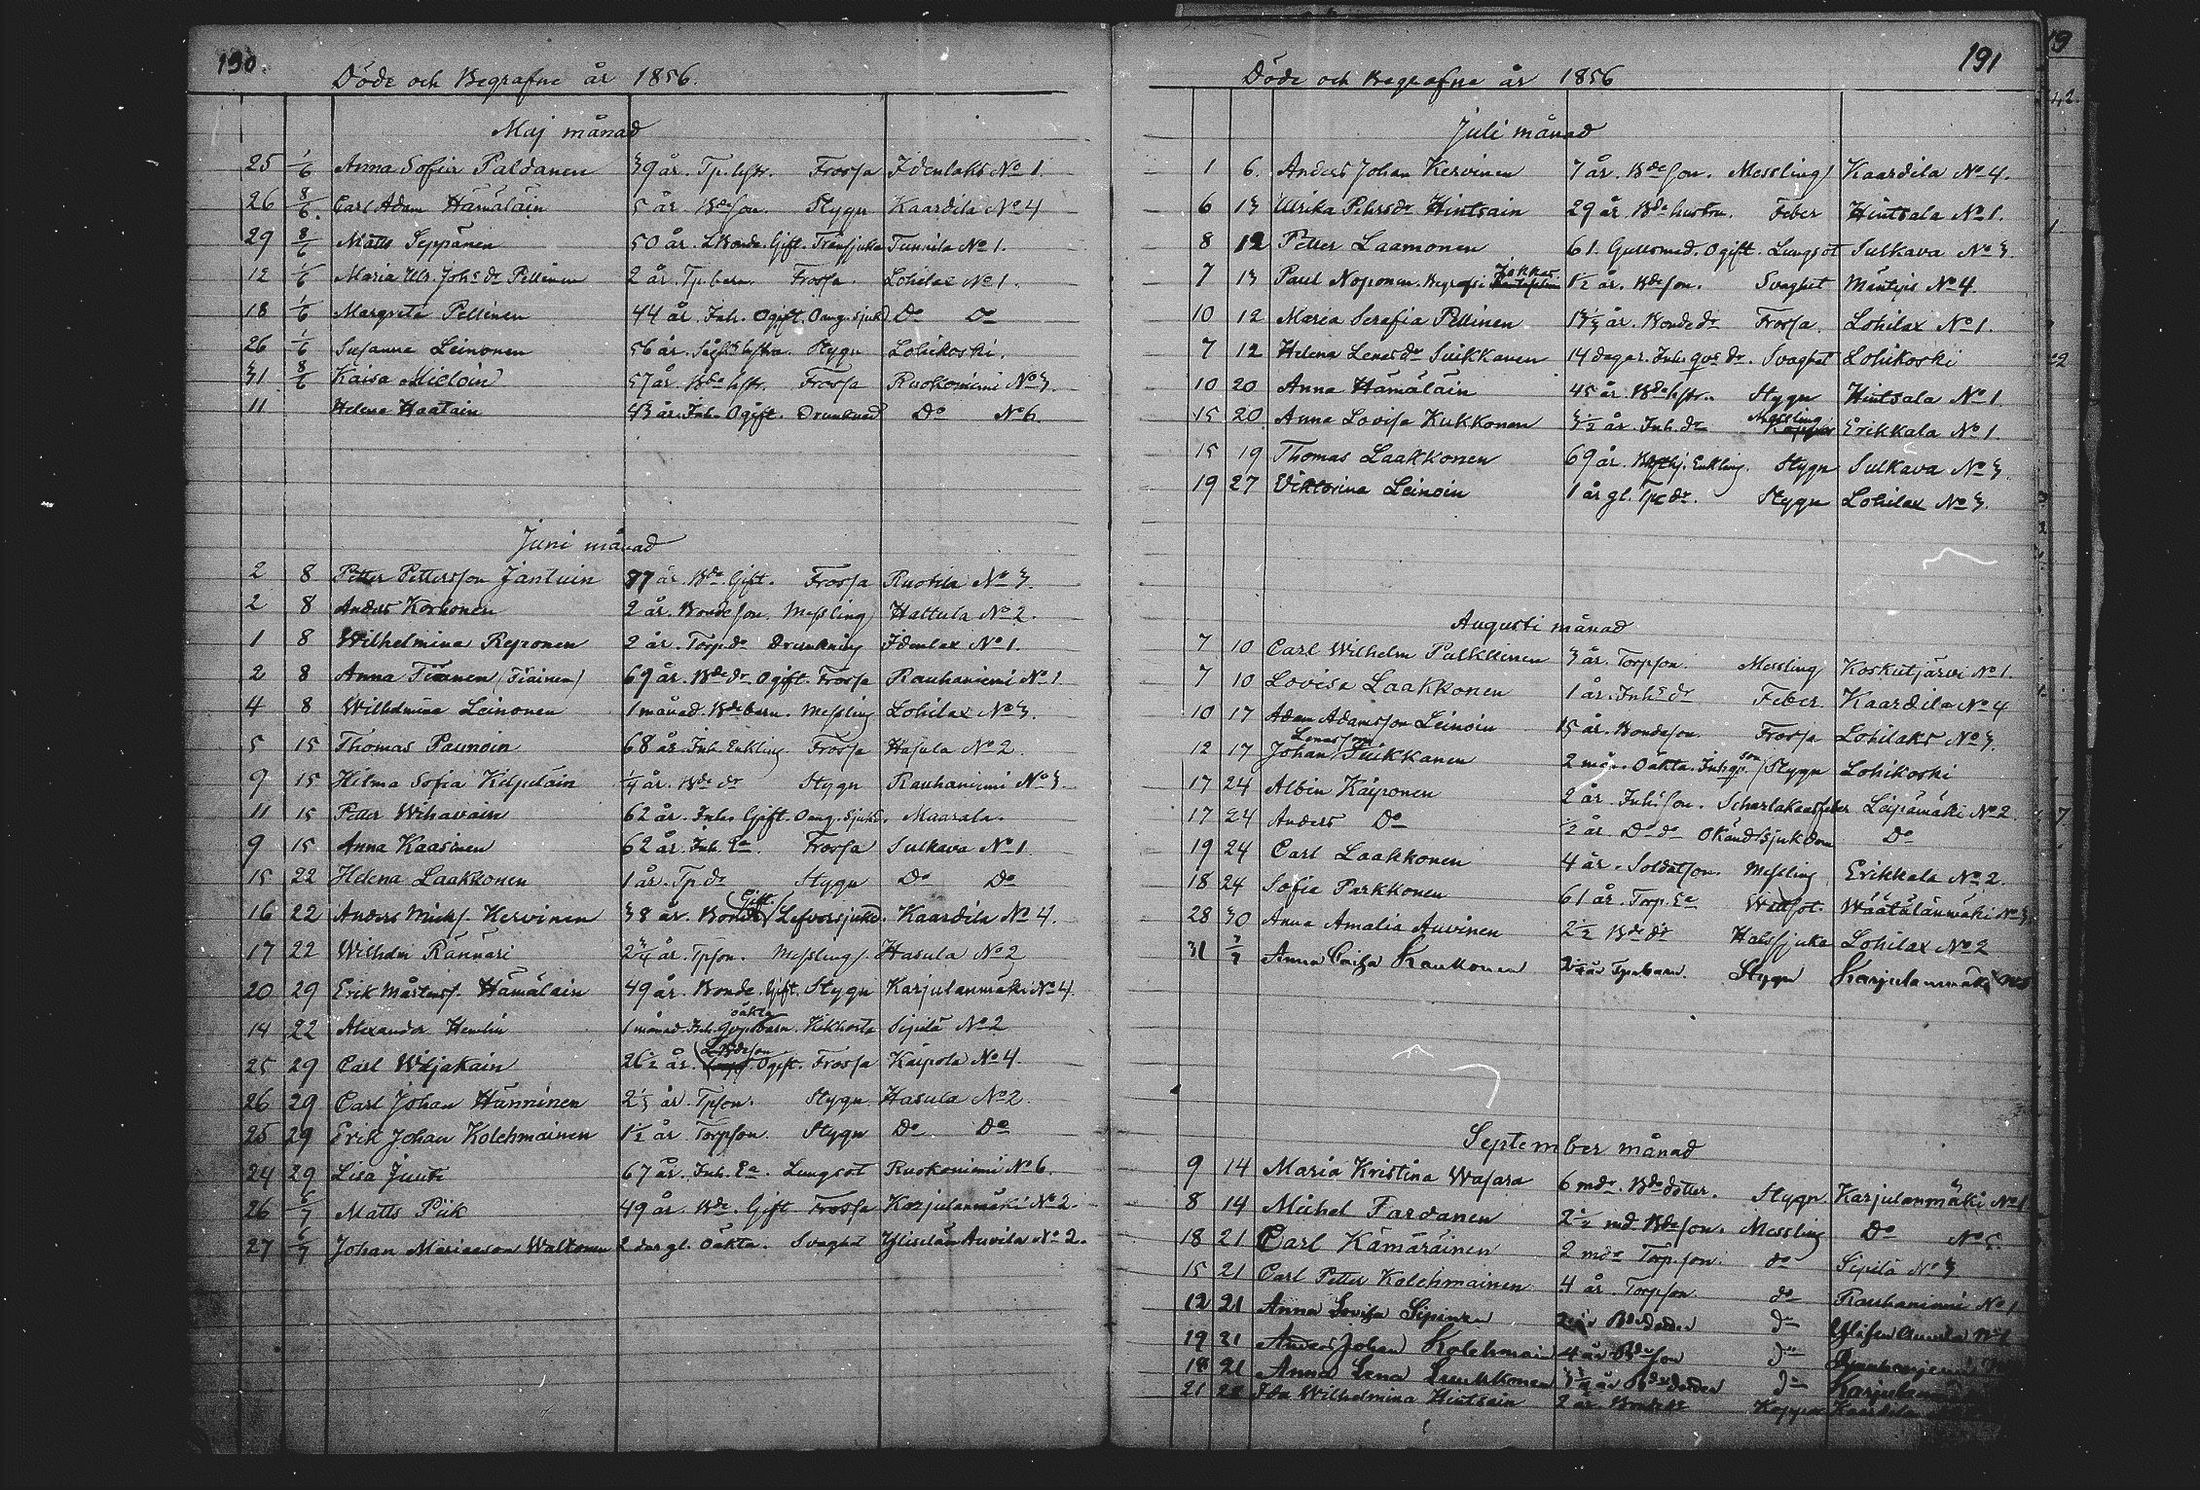 190.
Döde och Begrafne år 1856.
Maj månad
25 1/6 Anna Sofia Paldanen 39 år. Tp. hstr. Frossa Idenlaks No 1.
26 8/6 Carl Adam Hämäläin 5 år. Bdeson. Stygn Kaardila No 4
29 8/6 Matts Seppänen 50 år. LBonde. Gift. Tunnila No 1.
12 1/6 Maria Ulr. Johsdr Pellinen 2 år. Tp. barn. Frossa. Lohilax No 1.
18 1/6 Margreta Pellinen 44 år. Inh. Ogift. Oang. sjukd Do Do
26 1/6 Susanna Leinonen 56 år. hstru. Stygn Lohikoski.
31 8/6 Kaisa Mieloin 57 år. Bde hstr. Frossa Ruokoniemi No 3.
11 Helena Haatain 43 år. Inh. Ogift. Drunknad Do No 6.
Juni månad
2 8 Petter Pettersson Jantuin 87 år. Bde. Gift. Frossa Ruokola No 3.
2 8 Anders Korhonen 2 år. Bondeson. Messling Haltula No 2.
1 8 Wilhelmina Reponen 2 år. Torp.dr Drunkning Idenlax No 1.
2 8 Anna Tiänen (Tiainen) 69 år. Bde dr Ogift. Frossa Rauhaniemi No 1
4 8 Wilhelmina Leinonen 1 månad. Bde barn. Messling Lohilax No 3.
5 15 Thomas Paunoin 68 år. Inh. Enkling Frossa Hasula No 2.
9 15 Hilma Sofia Kilpeläin 1/4 år. Bde dr Stygn Rauhaniemi No 3
11 15 Petter Wihavain 62 år. Inhs Gift. Oang. sjukd. Maarala.
9 15 Anna Kaasinen 62 år. Inh. Ea. Frossa Sulkava No 1.
15 22 Helena Laakkonen 1 år. Tp dr Stygn Do Do
16 22 Anders Michs. Kervinen 38 år. Bonde Gift. Lefversjukd. Kaardila No 4.
17 22 Wilhelm Rännäri 2 3/4 år. Tpson. Messling. Hasula No 2
20 29 Erik Mårtenss. Hämäläin 49 år. Bonde. Gift. Stygn Karjulanmäki No 4.
14 22 Alexander Hemlin 1 månad. Inh. oäkta barn. Kikhosta Sipilä No 2
25 29 Carl Wiljakain 26 1/2 år. LBdeson Ogift. Frossa Kaipola No 4.
26 29 Carl Johan Hänninen 2 1/3 år. Tpson. Stygn Hasula No 2.
25 29 Erik Johan Kolehmainen 1 1/2 år Torpson. Stygn Do Do
24 29 Lisa Juuti 67 år. Inh. Ea. Lungsot Ruokoniemi No 6.
26 6/7 Matts Piik 49 år. Bde. Gift Frossa Karjulanmäki No 2.
27 6/7 Johan Mariaeson Waltonen 2 dar gl. Oäkta. Svaghet Ylisilän Auvila No 2.
191
Döde och Begrafne år 1856
Juli månad
1 6. Anders Johan Kervinen 7 år. Bdeson. Messling Kaardila No 4.
6 13 Ulrika Pehrsdr Hintsain 29 år. Bde hustru. Feber Hintsala No 1.
8 12 Petter Laamonen 61. Ogift. Lungsot Sulkava No 3.
7 13 Paul Noponen. Begrafs i Jokkas 1 1/2 år. Bdeson. Svaghet Mäntyis No 4
10 12 Maria Serafia Pellinen 1 1/3 år. Bonde dr Frossa. Lohilax No 1.
7 12 Helena Lenasdr Suikkanen 14 dagar. Inh. qvs dr. Svaghet Lohikoski
10 20 Anna Hämäläin 45 år. Bde hstr. Stygn Hintsala No 1
15 20. Anna Lovisa Kukkonen 3 1/2 år. Inh. dr Messling Erikkala No 1.
15 19 Thomas Laakkonen 69 år. Enkling. Stygn Sulkava No 3.
19 27 Viktorina Leinoin 1 år gl. Tp dr. Stygn Lohilax No 3.
Augusti månad
7 10 Carl Wilhelm Pulkkinen 3 år. Torpson. Messling Koskutjärvi No 1.
7 10 Lovisa Laakkonen 1 år. Inhs dr Feber Kaardila No 4
10 17 Adam Adamsson Leinoin 15 år. Bondeson. Frossa Lohilaks No 3.
12 17 Johan Lenasson Suikkanen 2 mån. Oäkta. Inh qv. son Stygn Lohikoski
17 24 Albin Käiponen 2 år. Inhsson. Scharlakansfeber Leipämäki No 2.
17 24 Anders Do 1/2 år. Do do Okänd sjukdom Do
19 24 Carl Laakkonen 4 år. Soldatson. Messling Erikkala No 2.
18 24 Sofia Parkkonen 61 år. Torp. Ea Wattsot. Wäätälänmäki No 3.
28 30 Anna Amalia Auvinen 2 1/2 Bde dr Halssjuka Lohilax No 2
31 Anna Caisa Kaukonen 2 1/4 år Tpr barn. Stygn Karjulanmäki
September månad
9 14 Maria Kristina Wasara 6 mdr. Bde dotter. Stygn Karjulanmäki No 1
8 14 Michel Pardanen 2 1/2 md. Bdeson. Messling Do No 5.
18 21 Carl Kämäräinen 2 mdr Torp. son. do Sipilä No 3
15 21 Carl Petter Kolehmainen 4 år. Torpson do Rauhaniemi No 1
12 21 Anna Lovisa Sipinen Bde dotter do
19 21 Anders Johan Kolehmain 4 år Bdeson do
18 21 Anna Lena Luukkonen 3 1/4 år Bde dotter do Karjulanmäki
21 28 Ida Wilhelmina Hintsain 2 år. Bonde dr Koppor Kaardila